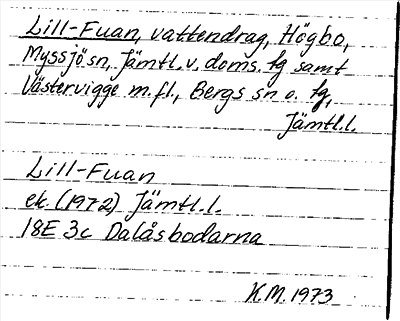 Lill-Fuan, vattendrag, Högbo,
Myssjö sn, Jämtl. v. doms. tg samt
Västervigge m.fl., Bergs sn o. tg,
Jämtl.l.
Lill-Fuan
ek. (1972) Jämtl.l.
18E 3c Dalåsbodarna
K.M. 1973